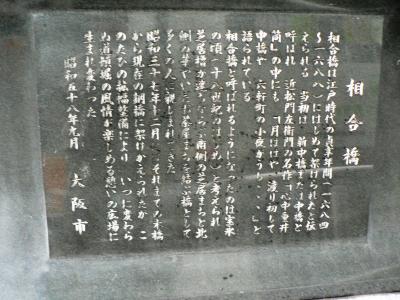 相合橋
相合橋は江戸時代の貞享年間(一六八四
〜一六八八)にはじめて架けられたと伝
えられる 当初は、新中橋または中橋と
呼ばれ、近松門左衛門の名作「心中重井
筒」の中にも「月ははや、渡り初して
中橋や 六軒町の小夜かうし、、、」と
語られている
相合橋と呼ばれるようになったのは宝永
の頃(十八世紀のはじめ)と考えられ
芝居櫓が建ちならぶ南側の芝居まちと北
側の華やいだ茶屋まちを結ぶ橋として
多くの人に親しまれてきた
昭和三十七年十二月 それまでの木橋
から現在の鋼橋に架けかえられたが こ
のたびの拡幅整備により いつに変わら
ぬ道頓堀の風情が楽しめる憩いの広場に
生まれ変わった
昭和五十八年九月 大阪市